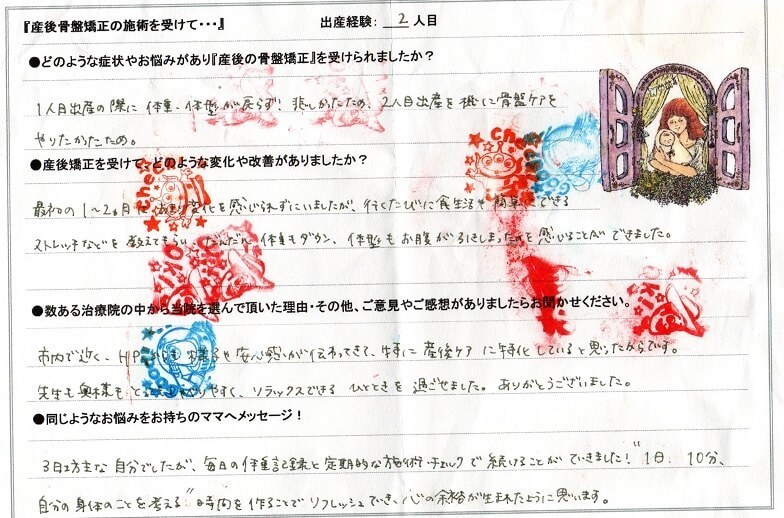 『産後骨盤矯正の施術を受けて・・・』 出産経験： 2 人目
●どのような症状やお悩みがあり『産後の骨盤矯正』を受けられましたか？
1人目出産の際に体重、体型が戻らず！悲しかったため、2人目出産を機に骨盤ケアを
やりたかったため。
●産後矯正を受けて、どのような変化や改善がありましたか？
最初の1〜2ヶ月は 変化を感じられずにいましたが、行くたびに食生活や簡単にできる
ストレッチなどを教えてもらい、だんだん体重もダウン、体型もお腹が引きしまったのを感じることができました。
●数ある治療院の中から当院を選んで頂いた理由・その他、ご意見やご感想がありましたらお聞かせください。
市内で近く、HP 安心感が伝わってきて、特に産後ケアに特化していると思ったからです。
先生も奥様も やすく、リラックスできるひとときを過ごせました。ありがとうございました。
●同じようなお悩みをお持ちのママへメッセージ！
3日坊主な自分でしたが、毎日の体重記録と定期的な施術・チェックで続けることができました！"1日、10分、
自分の身体のことを考える"時間を作ることでリフレッシュでき、心の余裕が生まれたように思います。